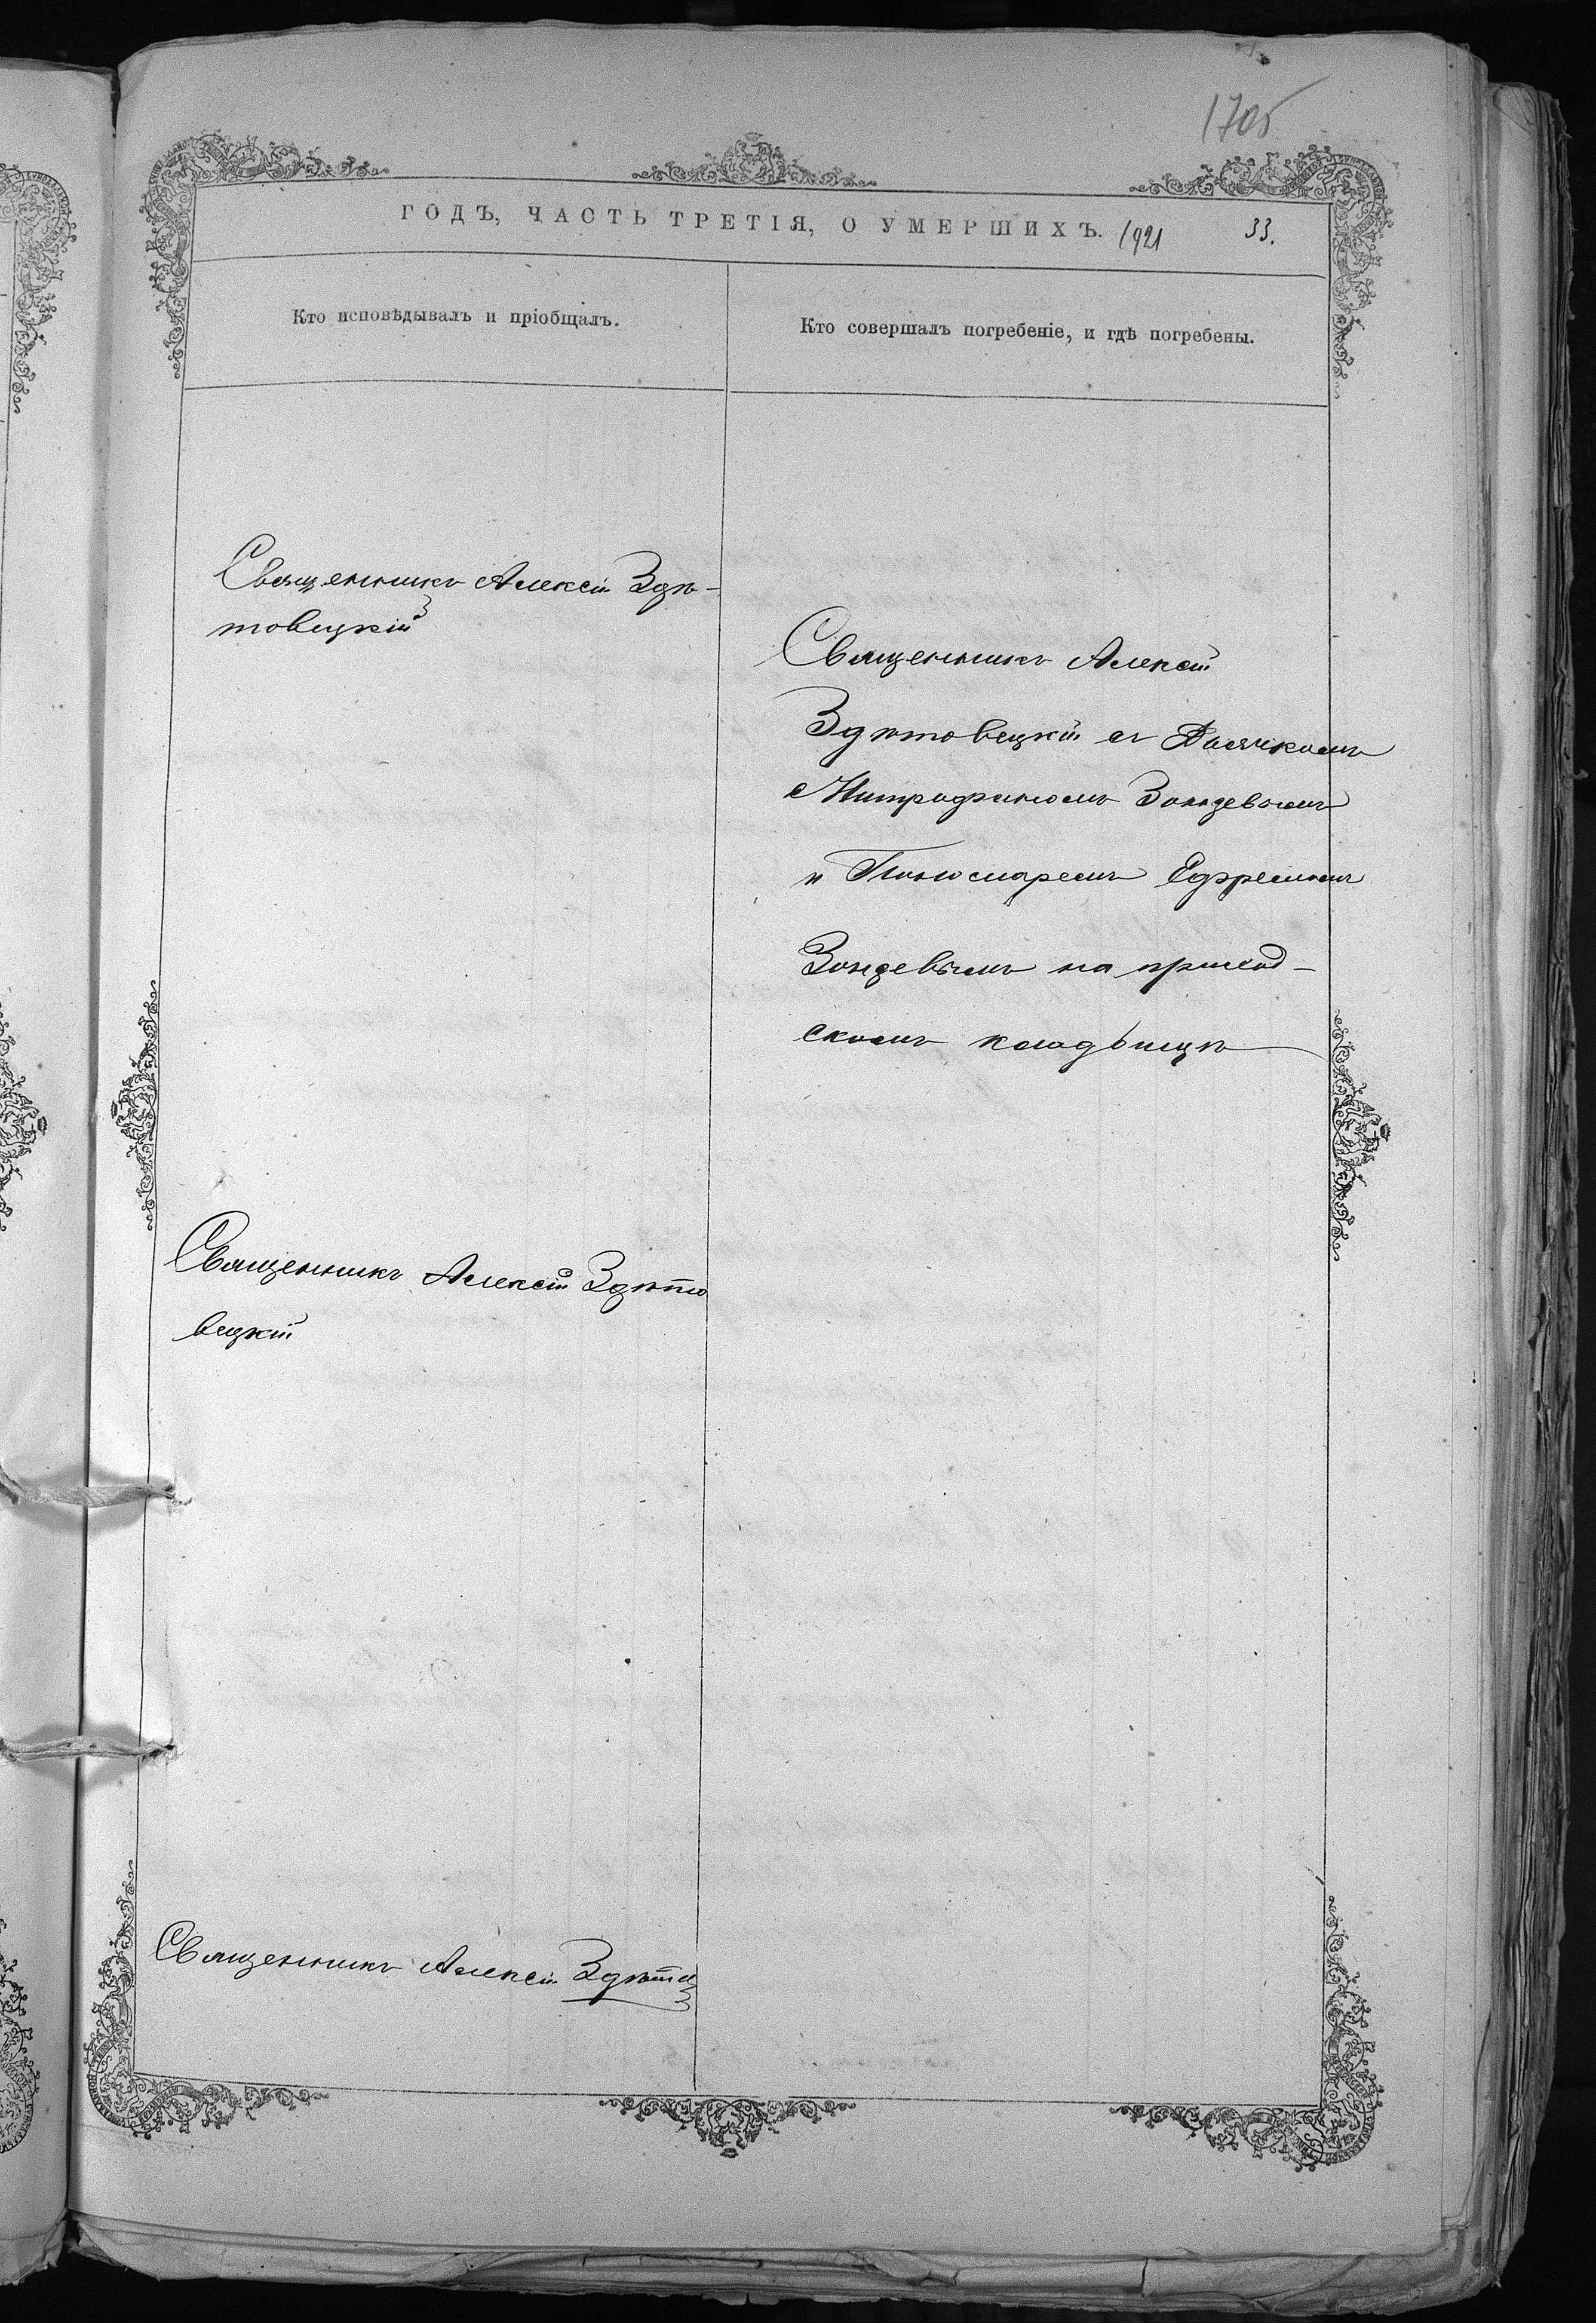 1705
ГОДЪ, ЧАСТЬ ТРЕТІЯ, О УМЕРШИХЪ. 1921 33.
Кто исповѣдывалъ и пріобщалъ.
Кто совершалъ погребеніе, и гдѣ погребены.
Священникъ Алексій Здѣ-
товецкій
Священникъ Алексій
Здѣтовецкій съ Дьячкомъ
Митрофаномъ
и Пономаремъ Ефремомъ
на приход-
скомъ кладбищѣ
Священникъ Алексій Здѣто
вецкій
Священникъ Алексій Здѣто